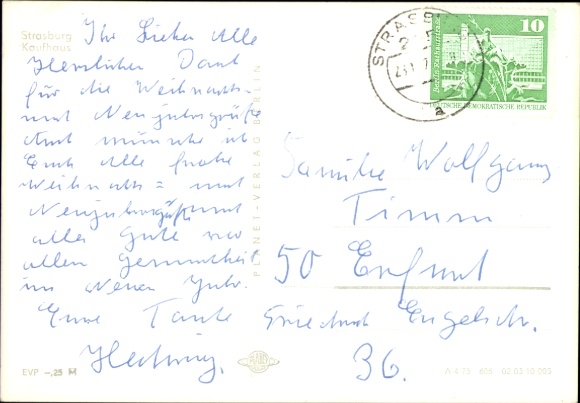 Strasburg
Kaufhaus
Ihr Lieben Alle
Herzlichen Dank
für die Weihnachts-
und Neujahrsgrüße
Auch wünsche ich
Euch Alle frohe
Weihnachts= und
Neujahrsgrüße und
alles Gute vor
allen Gesundheit
im Neuen Jahr.
Eure Tante
Hedwig.
PLANET-VERLAG BERLIN
STRASBURG
a
10
Berlin-Rathausstraße
DEUTSCHE DEMOKRATISCHE REPUBLIK
Familie Wolfgang
Timm
50 Erfurt
Friedrich Engelsstr.
36.
EVP -,25 M
A 4 75